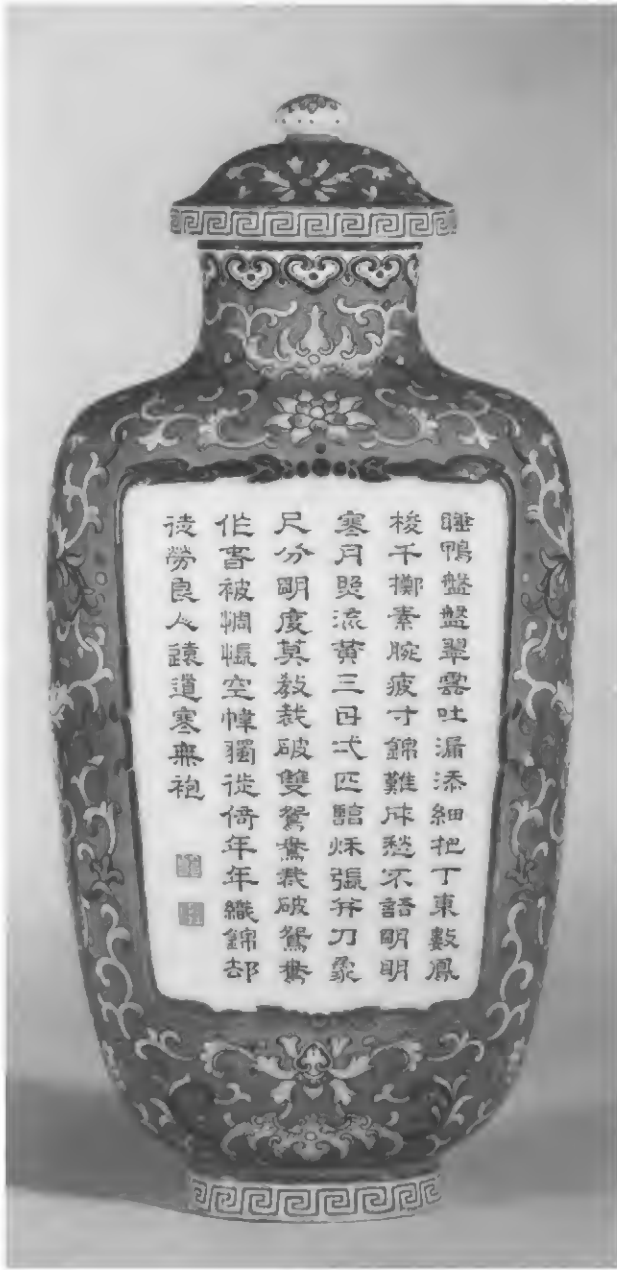 睡鴨盤盤翠雲吐漏添細把丁東數鳳
梭千擲素腕疲寸錦難成愁不語明明
寒月照流黃三日弍匹臨秋張并刀象
尺分明度莫教裁破雙鴛鴦裁破鴛鴦
作被惆悵空幃獨徙倚年年織錦却
徒勞良人遠道寒無袍